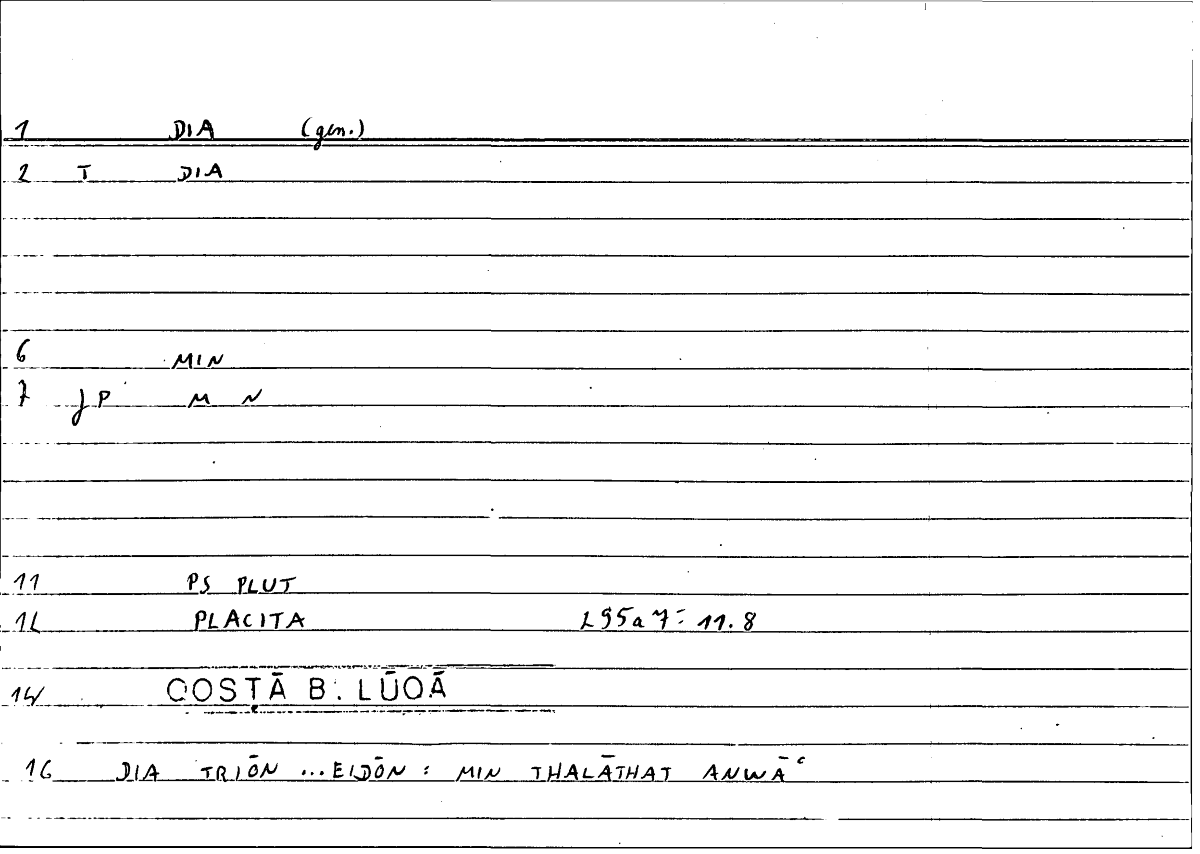 1 DIA (gen.)
2 T DIA
6 MIN
7 JP M N
11 PS PLUT
12 PLACITA 295a7 = 11.8
14 QOSṬĀ B. LŪQĀ
16 DIA TRIŌN ...EIDŌN : MIN THALĀTHAT ANWĀʿ